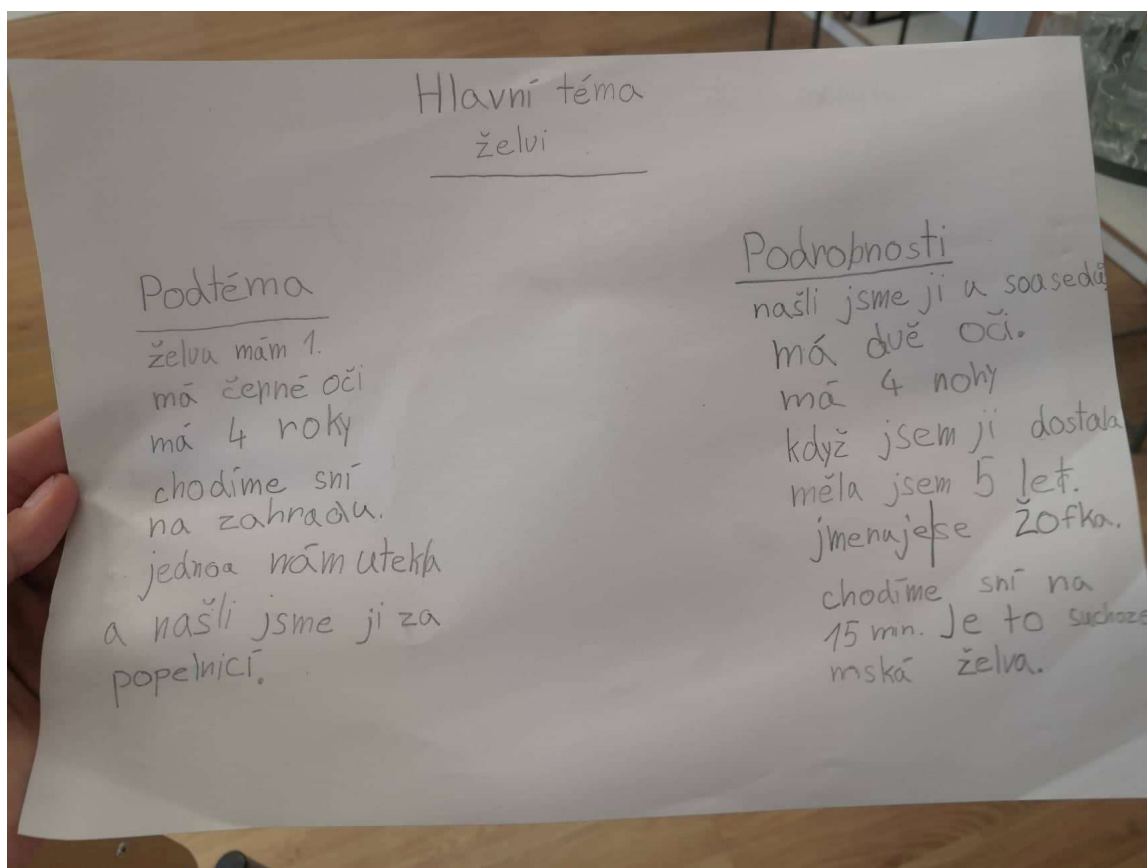 Hlavní téma
želvi
Podtéma
želvu mám 1.
má čepné oči
má 4 roky
chodíme sní
na zahradu.
jednoa nám utekla
a našli jsme ji za
popelnicí.
Podrobnosti
našli jsme ji u soasedů
má dvě oči.
má 4 nohy
když jsem ji dostala
měla jsem 5 let.
jmenuje|se Žofka.
chodíme sní na
15 min. Je to suchoze
mská želva.